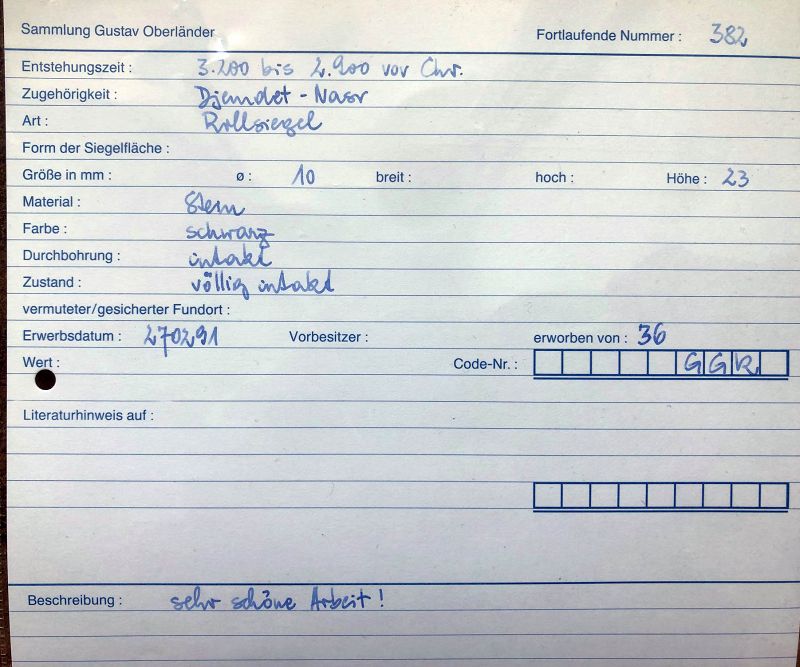 Sammlung Gustav Oberländer Fortlaufende Nummer : 382
Entstehungszeit : 3.200 bis 2.900 vor Chr.
Zugehörigkeit : Djemdet - Nasr
Art : Rollsiegel
Form der Siegelfläche :
Größe in mm : ø : 10 breit : hoch : Höhe : 23
Material : Stein
Farbe : schwarz
Durchbohrung : intakt
Zustand : völlig intakt
vermuteter/gesicherter Fundort :
Erwerbsdatum : 270291 Vorbesitzer : erworben von : 36
Wert : Code-Nr. : GGR
Literaturhinweis auf :
Beschreibung : sehr schöne Arbeit !